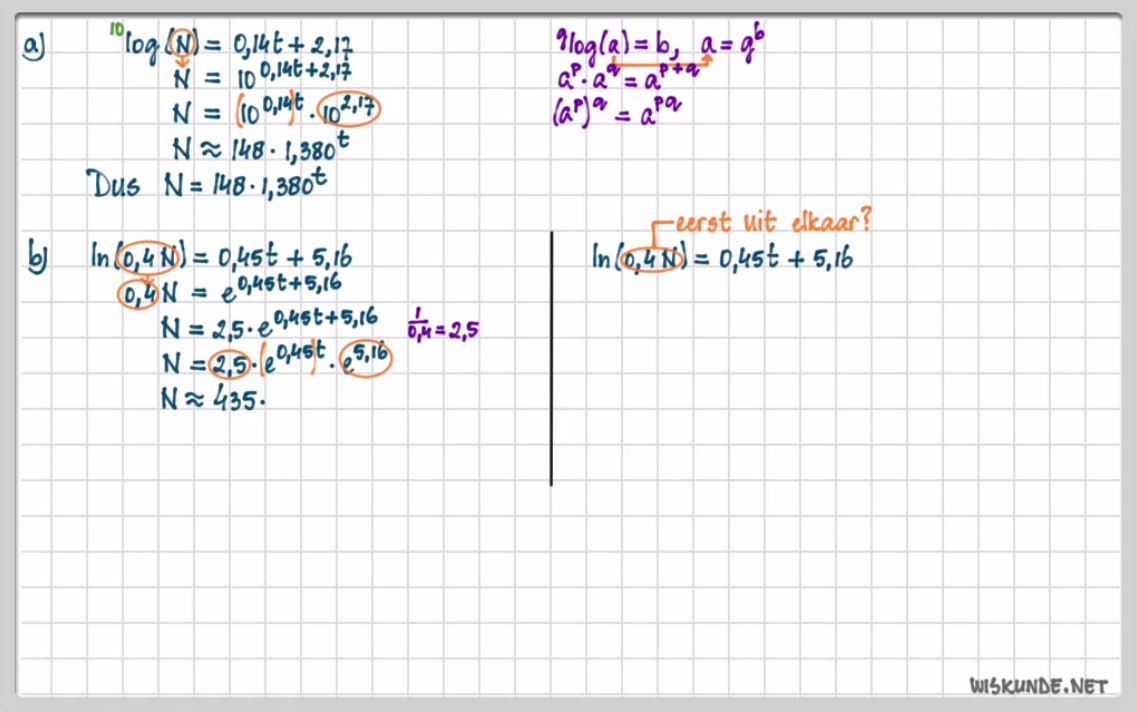 a) ¹⁰log(N) = 0,14t + 2,17
N = 10^(0,14t+2,17)
N = (10^0,14)^t · 10^2,17
N ≈ 148 · 1,380^t
Dus N = 148 · 1,380^t
ᵍlog(a) = b, a = g^b
a^p · a^q = a^(p+q)
(a^p)^q = a^pq
b) ln(0,4N) = 0,45t + 5,16
0,4N = e^(0,45t+5,16)
N = 2,5 · e^(0,45t+5,16) 1/0,4 = 2,5
N = 2,5 · (e^0,45)^t · e^5,16
N ≈ 435 ·
eerst uit elkaar?
ln(0,4N) = 0,45t + 5,16
WISKUNDE.NET